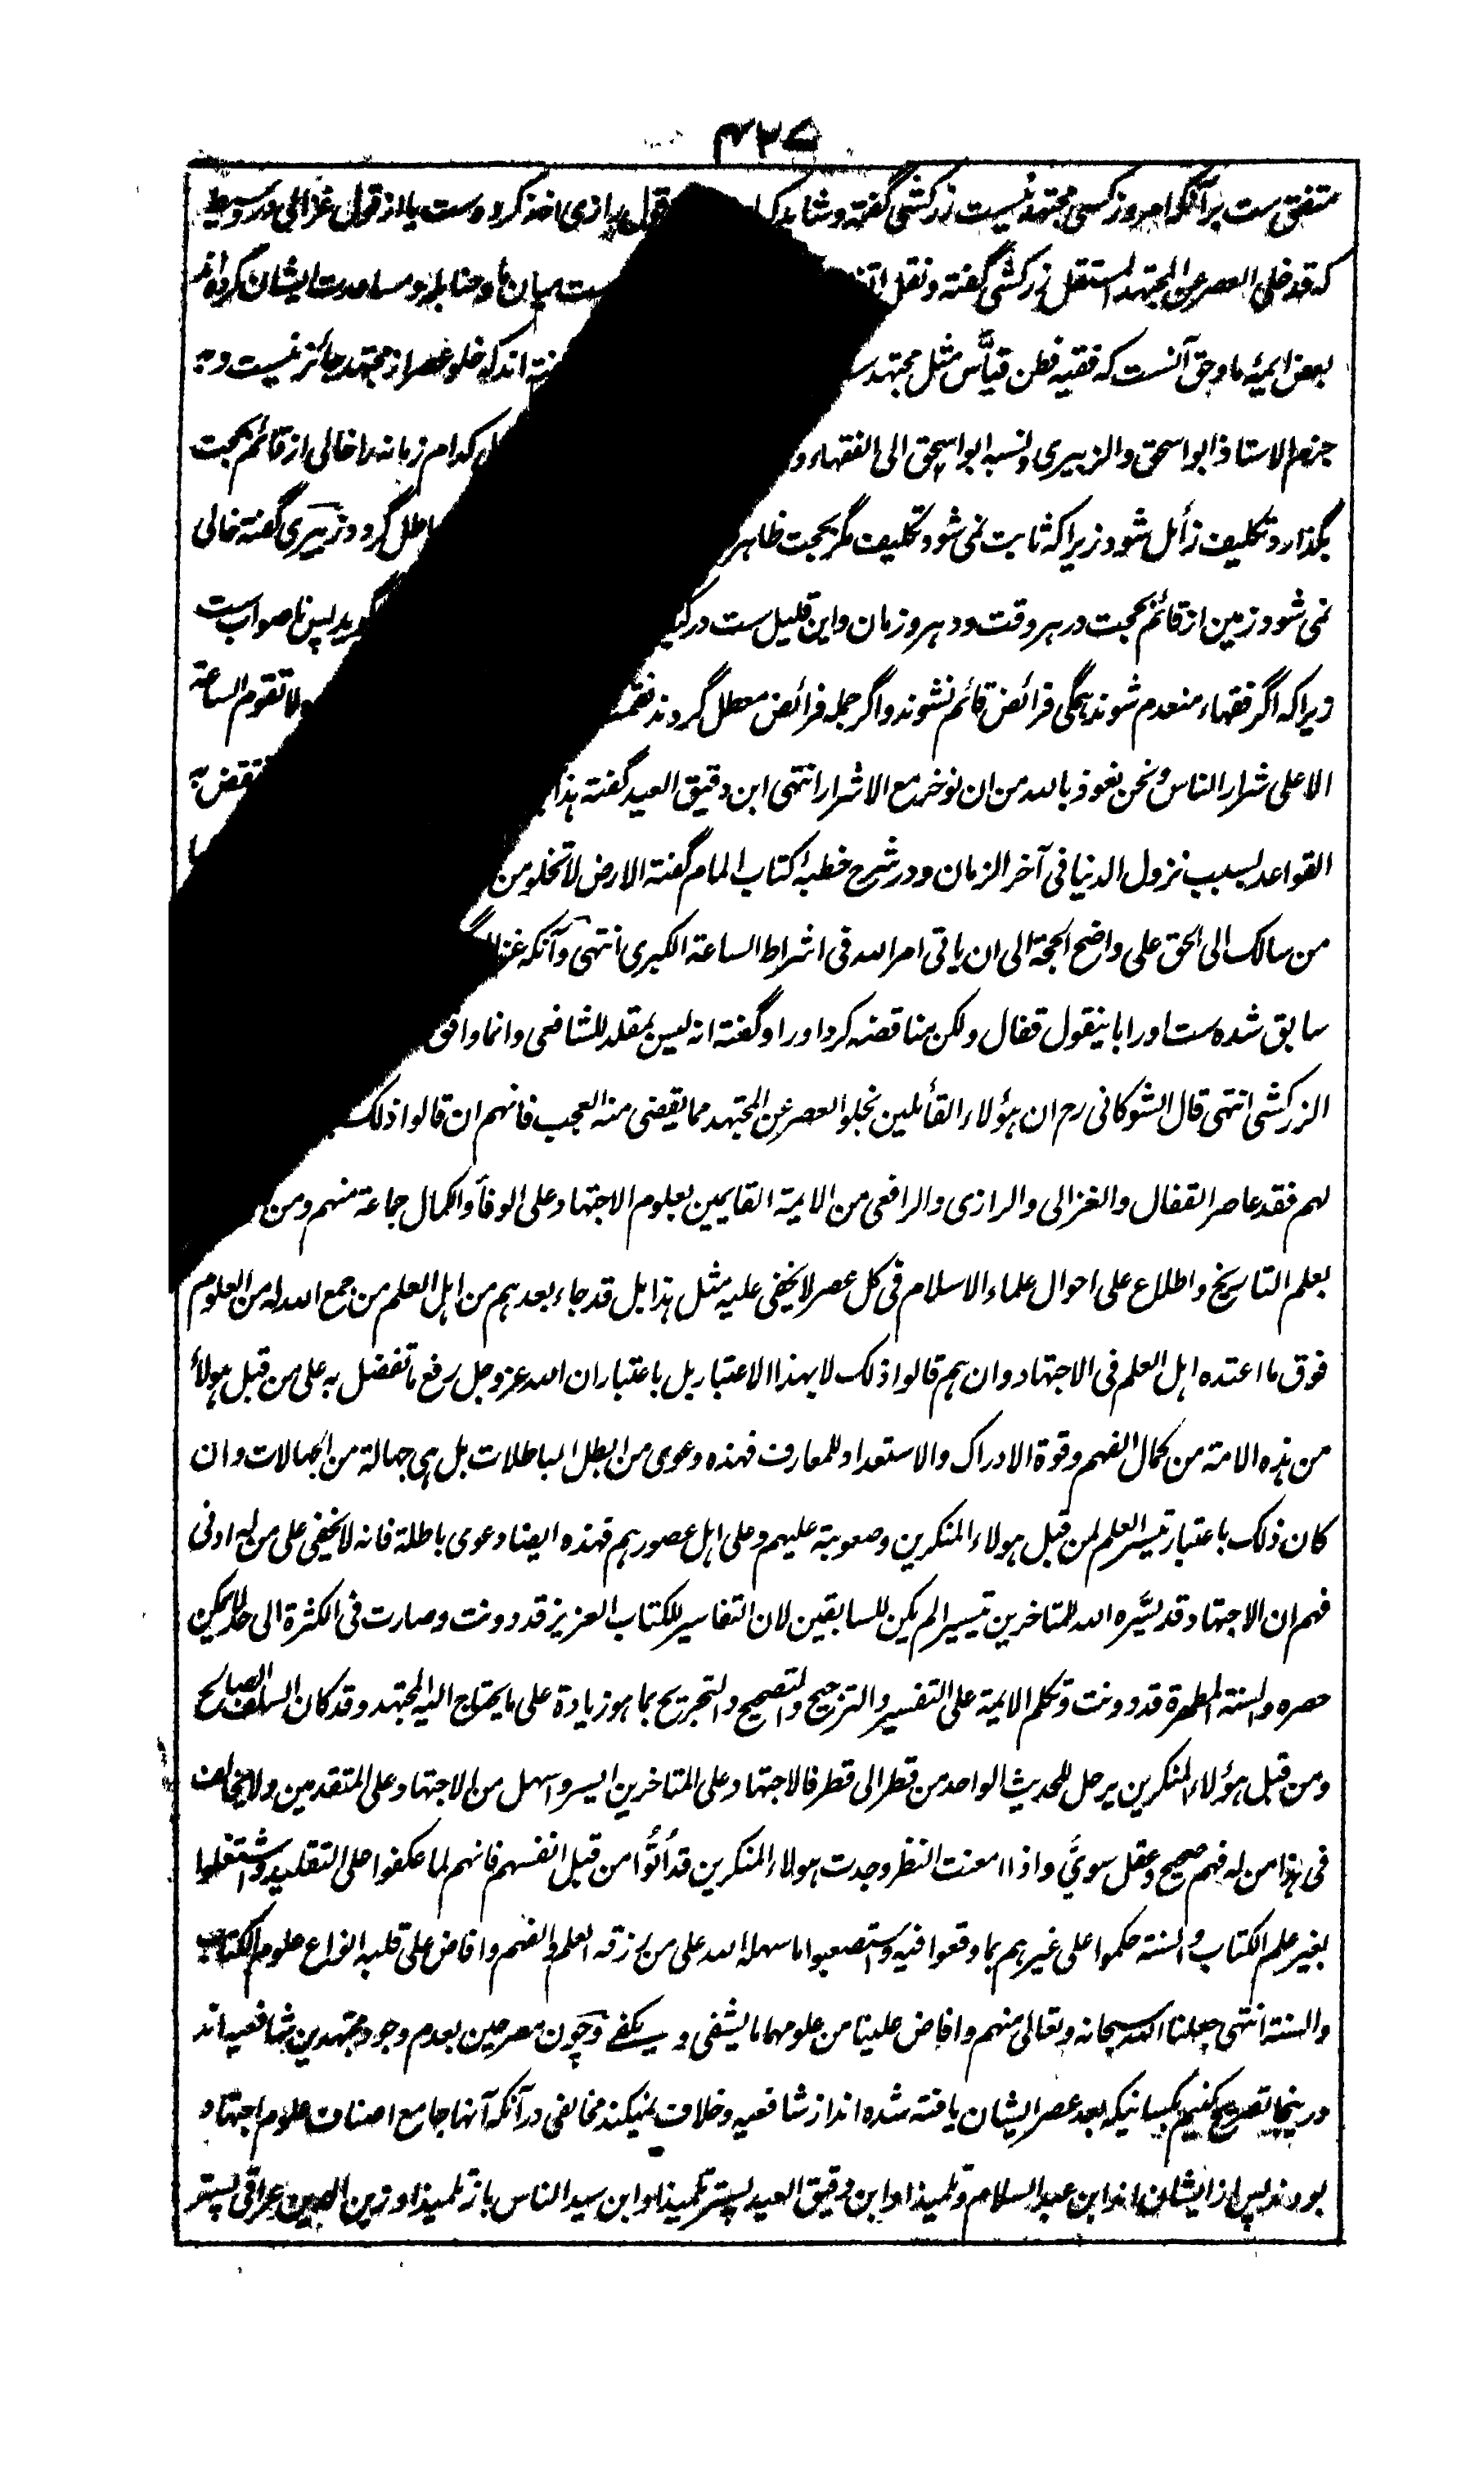 ۴۲۷
متفق ست برآنکه امروز کسی مجتهد نیست زرکشی گفته و شاید که قول رازی اخذ کرده ست یا از قول غزالی در وسیط
که قد خلی العصر عن المجتهد المستقل زرکشی گفته و نقل ست میان ما و حنابله و مساعدت ایشان کرده اند
بعض ایمهٔ ما و حق آنست که فقیه فطن قیاّس مثل مجتهد گفته اند که خلو عصر از مجتهد جائز نیست و به
جزم الاستاذ ابو اسحق والزبیری ونسبه ابو اسحق الی الفقهاء و کدام زمانه را خالی از قائم بحجت
بگذارد تکلیف زائل شود زیراکه ثابت نمی شود تکلیف مگر بحجت ظاهر باطل گردد زبیری گفته خالی
نمی شود زمین از قائم بحجت در هر وقت و دهر و زمان و این قلیل ست در گوید پس ناصواب ست
زیراکه اگر فقهاء منعدم شوند همگی فرائض قائم نشوند و اگر جمله فرائض معطل گردند ولا تقوم الساعة
الا علی شرار الناس ونحن نعوذ بالله من ان نوخر مع الاشرار انتهی ابن دقیق العید گفته هذا
القواعد بسبب نزول الدنیا فی آخر الزمان و در شرح خطبهٔ کتاب المام گفته الارض لا تخلو من
من سالک الی الحق علی واضح الحجة الی ان یاتی امر الله فی اشراط الساعة الکبری انتهی و آنکه
سابق شده ست او را باینقول قفال ولکن مناقضه کرد او را و گفته انه لیس بمقلد للشافعی وانما وافق
الزرکشی انتهی قال الشوکانی رح ان هؤلاء القائلین بخلو العصر عن المجتهد مما یقضی منه العجب فانهم ان قالوا ذلک
لهم فقد عاصر القفال والغزالی والرازی والرافعی من الایمة القایمین بعلوم الاجتهاد علی الوفا والکمال جماعة منهم ومن
بعلم التاریخ واطلاع علی احوال علماء الاسلام فی کل عصر لا یخفی علیه مثل هذا بل قد جاء بعدهم من اهل العلم من جمع الله له من العلوم
فوق ما اعتده اهل العلم فی الاجتهاد وان هم قالوا ذلک لا بهذا الاعتبار بل باعتبار ان الله عز وجل رفع ما تفضل به علی من قبل هولاء
من هذه الامة من کمال الفهم وقوة الادراک والاستعداد للمعارف فهذه دعوی من ابطل الباطلات بل هی جهالة من الجهالات وان
کان ذلک باعتبار تیسر العلم لمن قبل هولاء المنکرین وصعوبته علیهم وعلی اهل عصورهم فهذه ایضا دعوی باطلة فانه لا یخفی علی من له ادنی
فهم ان الاجتهاد قد یسَّره الله للمتاخرین تیسیرا لم یکن للسابقین لان التفاسیر للکتاب العزیز قد دونت وصارت فی الکثرة الی حد لا یمکن
حصره والسنة المطهرة قد دونت وتکلم الایمة علی التفسیر والترجیح والتصحیح والتجریح بما هو زیادة علی ما یحتاج الیه المجتهد وقد کان السلف الصالح
ومن قبل هؤلاء المنکرین یرحل للحدیث الواحد من قطر الی قطر فالاجتهاد علی المتاخرین ایسر واسهل من الاجتهاد علی المتقدمین ولا یخالف
فی هذا من له فهم صحیح وعقل سویَّ واذا امعنت النظر وجدت هولاء المنکرین قد اُتُوا من قبل انفسهم فانهم لما عکفوا علی التقلید واشتغلوا
بغیر علم الکتاب والسنة حکموا علی غیرهم بما وقعوا فیه واستصعبوا ما سهله الله علی من رزقه العلم والفهم وافاض علی قلبه انواع علوم الکتاب
والسنة انتهی جعلنا الله سبحانه وتعالی منهم وافاض علینا من علومهما ما یشفی ویکفے و چون مصرحین بعدم وجود مجتهدین شافعیه اند
درینجا تصریح کنیم بکسانیکه بعد عصر ایشان یافته شده اند از شافعیه و خلاف نمیکند مخالفی در آنکه آنها جامع اصناف علوم اجتهاد
بودند پس از ایشان اند ابن عبد السلام و تلمیذ او ابن دقیق العید پستر تلمیذ او ابن سید الناس باز تلمیذ او زین الدین عراقی پستر